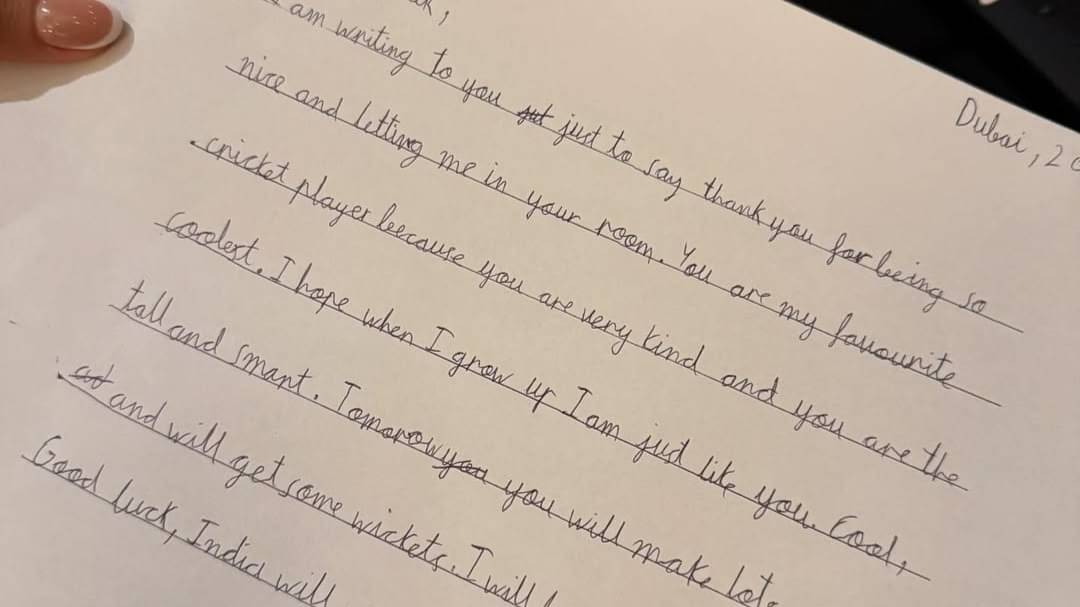 Dubai, 2
am writing to you just to say thank you for being so
nice and letting me in your room. You are my favourite
cricket player because you are very kind and you are the
coolest. I hope when I grow up I am just like you. Cool,
tall and smart. Tomorow you will make lot
and will get some wickets. I will
Good luck, India will